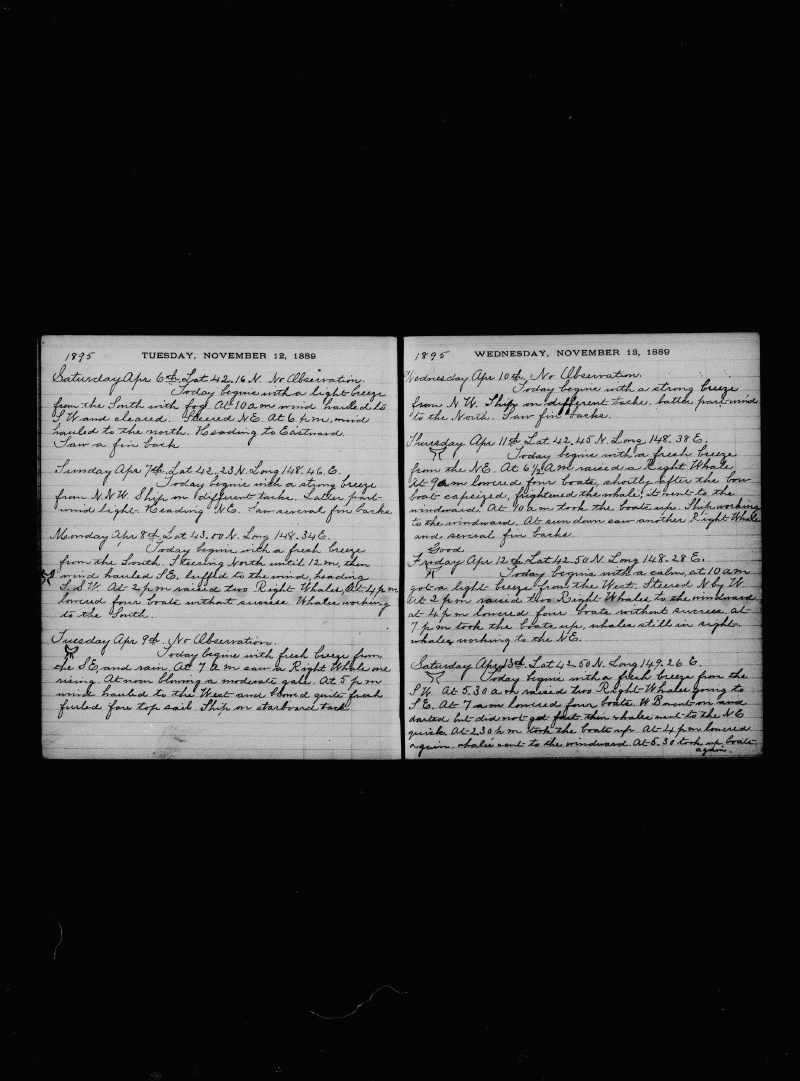 1895 TUESDAY, NOVEMBER 12, 1889
Saturday Apr 6th. Lat 42.16 N. No Observation.
Today begins with a light breeze
from the South with fog. At 10 am wind hauled to
SW and cleared. Steered NE. At 6 pm, wind
hauled to the north. Heading to Eastward.
Saw a fin back
Sunday Apr 7th. Lat 42.23 N. Long 148.46. E.
Today begins with a strong breeze
from N.N.W. Ship on different tacks. Latter part
wind light. Heading NE. Saw several fin backs
Monday Apr 8th. Lat 43.00 N. Long 148.34 E.
Today begins with a fresh breeze
from the South. Steering North until 12 m, then
wind hauled SE, luffed to the wind, heading
S.SW. At 2 pm raised two Right Whales, At 4 pm
lowered four boats without success. Whales working
to the South.
Tuesday Apr 9th. No Observation.
Today begins with fresh breeze from
the SE, and rain. At 7 a m saw a Right Whale one
rising. At noon blowing a moderate gale. At 5 pm
wind hauled to the West and blowed quite fresh
furled fore top sail. Ship on starboard tack
1895 WEDNESDAY, NOVEMBER 13, 1889
Wednesday Apr 10th. No Observation.
Today begins with a strong breeze
from N.W. Ship on different tacks. latter part wind
to the North. Saw fin backs.
Thursday Apr 11th Lat 42.45 N. Long 148.38 E.
Today begins with a fresh breeze
from the NE. At 6 1/2 Am raised a Right Whale
At 9 am lowered four boats, shortly after the bow
boat capsized, frightened the whale, it went to the
windward. At 10 am took the boats up. Ship working
to the windward. At sun down saw another Right Whale
and several fin backs.
Good
Friday Apr 12th Lat 42.50 N. Long 148.28 E.
Today begins with a calm, at 10 am
got a light breeze from the West. Steered N by W
At 2 pm raised two Right Whales to the windward
at 4 pm lowered four boats without success. at
7 pm took the boats up, whales still in sight.
whales working to the NE.
Saturday Apr 13th. Lat 42.50 N. Long 149.26. E.
Today begins with a fresh breeze from the
SW. At 5.30 a m raised two Right Whales going to
SE. At 7 am lowered four boats. W B went on and
darted but did not get fast then whales went to the NE
quick. At 2.30 p m took the boats up. At 4 pm lowered
again. whales went to the windward. At 5.30 took up boats
again.